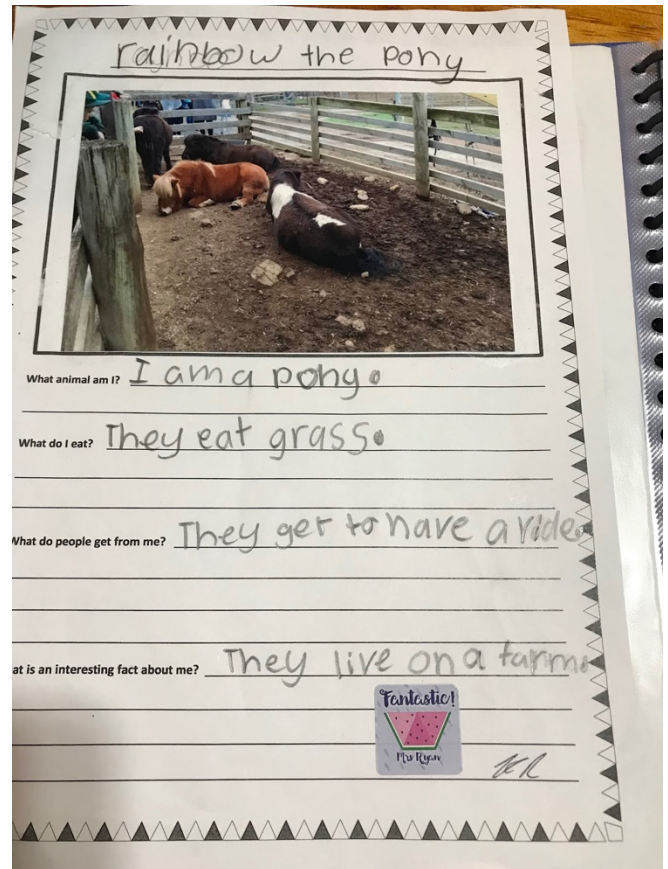 rainbow the pony
What animal am I? I am a pony.
What do I eat? They eat grass.
What do people get from me? They get to have a ride.
at is an interesting fact about me? They live on a farm.
Fantastic!
Mrs Ryan
KR